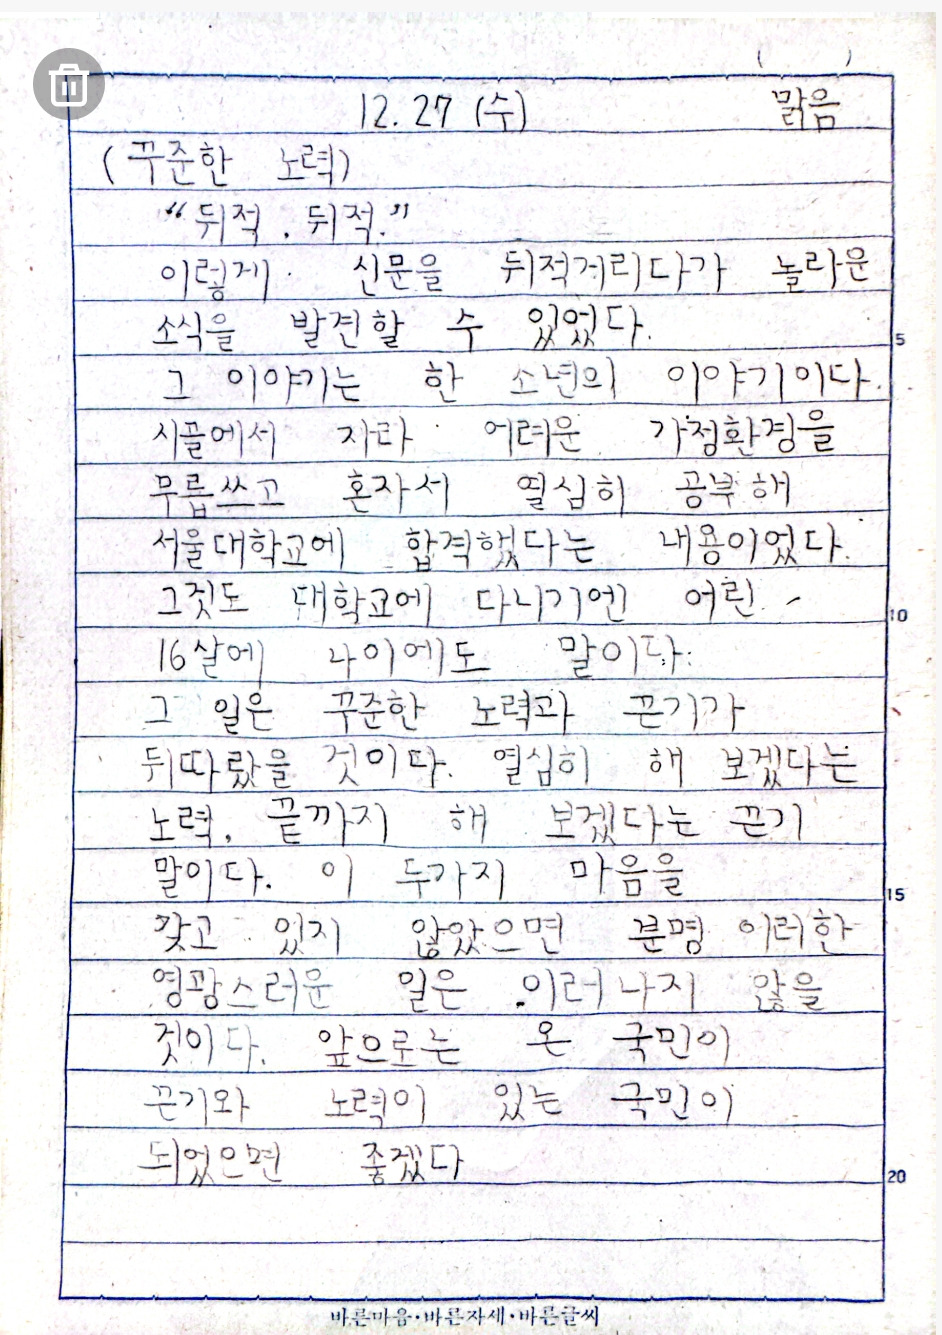 (        )
12. 27 (수) 맑음
(꾸준한 노력)
“뒤적, 뒤적.”
이렇게 신문을 뒤적거리다가 놀라운
소식을 발견할 수 있었다.
그 이야기는 한 소년의 이야기이다.
시골에서 자라 어려운 가정환경을
무릅쓰고 혼자서 열심히 공부해
서울대학교에 합격했다는 내용이었다.
그것도 대학교에 다니기엔 어린
16살에 나이에도 말이다.
그 일은 꾸준한 노력과 끈기가
뒤따랐을 것이다. 열심히 해 보겠다는
노력, 끝까지 해 보겠다는 끈기
말이다. 이 두가지 마음을
갖고 있지 않았으면 분명 이러한
영광스러운 일은 이러나지 않을
것이다. 앞으로는 온 국민이
끈기와 노력이 있는 국민이
되었으면 좋겠다
5
10
15
20
바른마음·바른자세·바른글씨